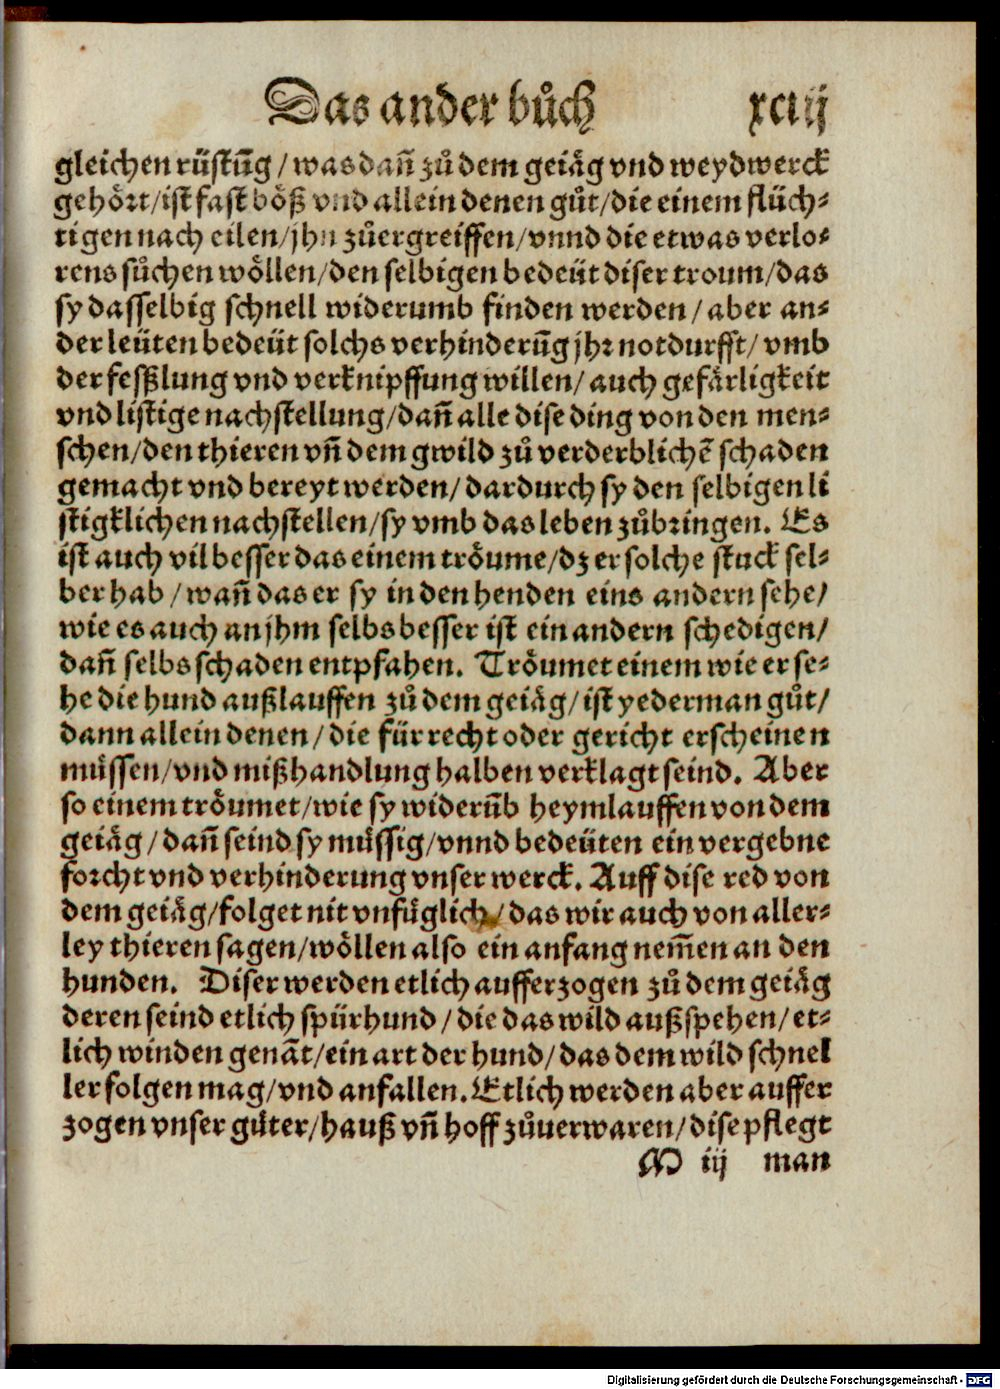 Das ander bůch xciij
gleichen rüstūg / was dañ zů dem geiäg vnd weydwerck
gehört/ist fast böß vnd allein denen gůt/die einem flüch-
tigen nach eilen/jhn zůergreiffen/vnnd die etwas verlo-
rens sůchen wöllen/den selbigen bedeüt diser troum/das
sy dasselbig schnell widerumb finden werden/aber an-
der leüten bedeüt solchs verhinderūg jhr notdurfft/vmb
der feßlung vnd verknipffung willen/auch gefärligkeit
vnd listige nachstellung/dañ alle dise ding von den men-
schen/den thieren vñ dem gwild zů verderblichē schaden
gemacht vnd bereyt werden/dardurch sy den selbigen li
stigklichen nachstellen/sy vmb das leben zůbringen. Es
ist auch vil besser das einem tröume/dz er solche stuck sel-
ber hab / wañ das er sy in den henden eins andern sehe/
wie es auch an jhm selbs besser ist ein andern schedigen/
dañ selbs schaden entpfahen. Tröumet einem wie er se-
he die hund außlauffen zů dem geiäg/ist yederman gůt/
dann allein denen/die für recht oder gericht erscheinen
müssen/vnd mißhandlung halben verklagt seind. Aber
so einem tröumet/wie sy widerūb heymlauffen von dem
geiäg/dañ seind sy müssig/vnnd bedeüten ein vergebne
forcht vnd verhinderung vnser werck. Auff dise red von
dem geiäg/folget nit vnfüglich/das wir auch von aller-
ley thieren sagen/wöllen also ein anfang nem̄en an den
hunden. Diser werden etlich aufferzogen zů dem geiäg
deren seind etlich spürhund/die das wild außspehen/et-
lich winden genāt/ein art der hund/das dem wild schnel
ler folgen mag/vnd anfallen. Etlich werden aber auffer
zogen vnser güter/hauß vñ hoff zůuerwaren/dise pflegt
M iij man
Digitalisierung gefördert durch die Deutsche Forschungsgemeinschaft - DFG